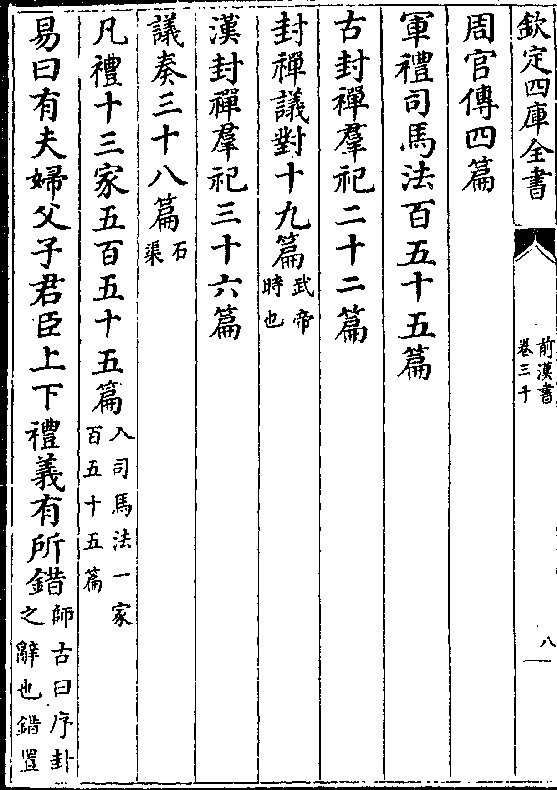 欽定四庫全書
前漢書
卷三十
八
周官傳四篇
軍禮司馬法百五十五篇
古封禪羣祀二十二篇
封禪議對十九篇武帝
時也
漢封禪羣祀三十六篇
議奏三十八篇石
渠
凡禮十三家五百五十五篇入司馬法一家
百五十五篇
易曰有夫婦父子君臣上下禮義有所錯師古曰序卦
之辭也錯置